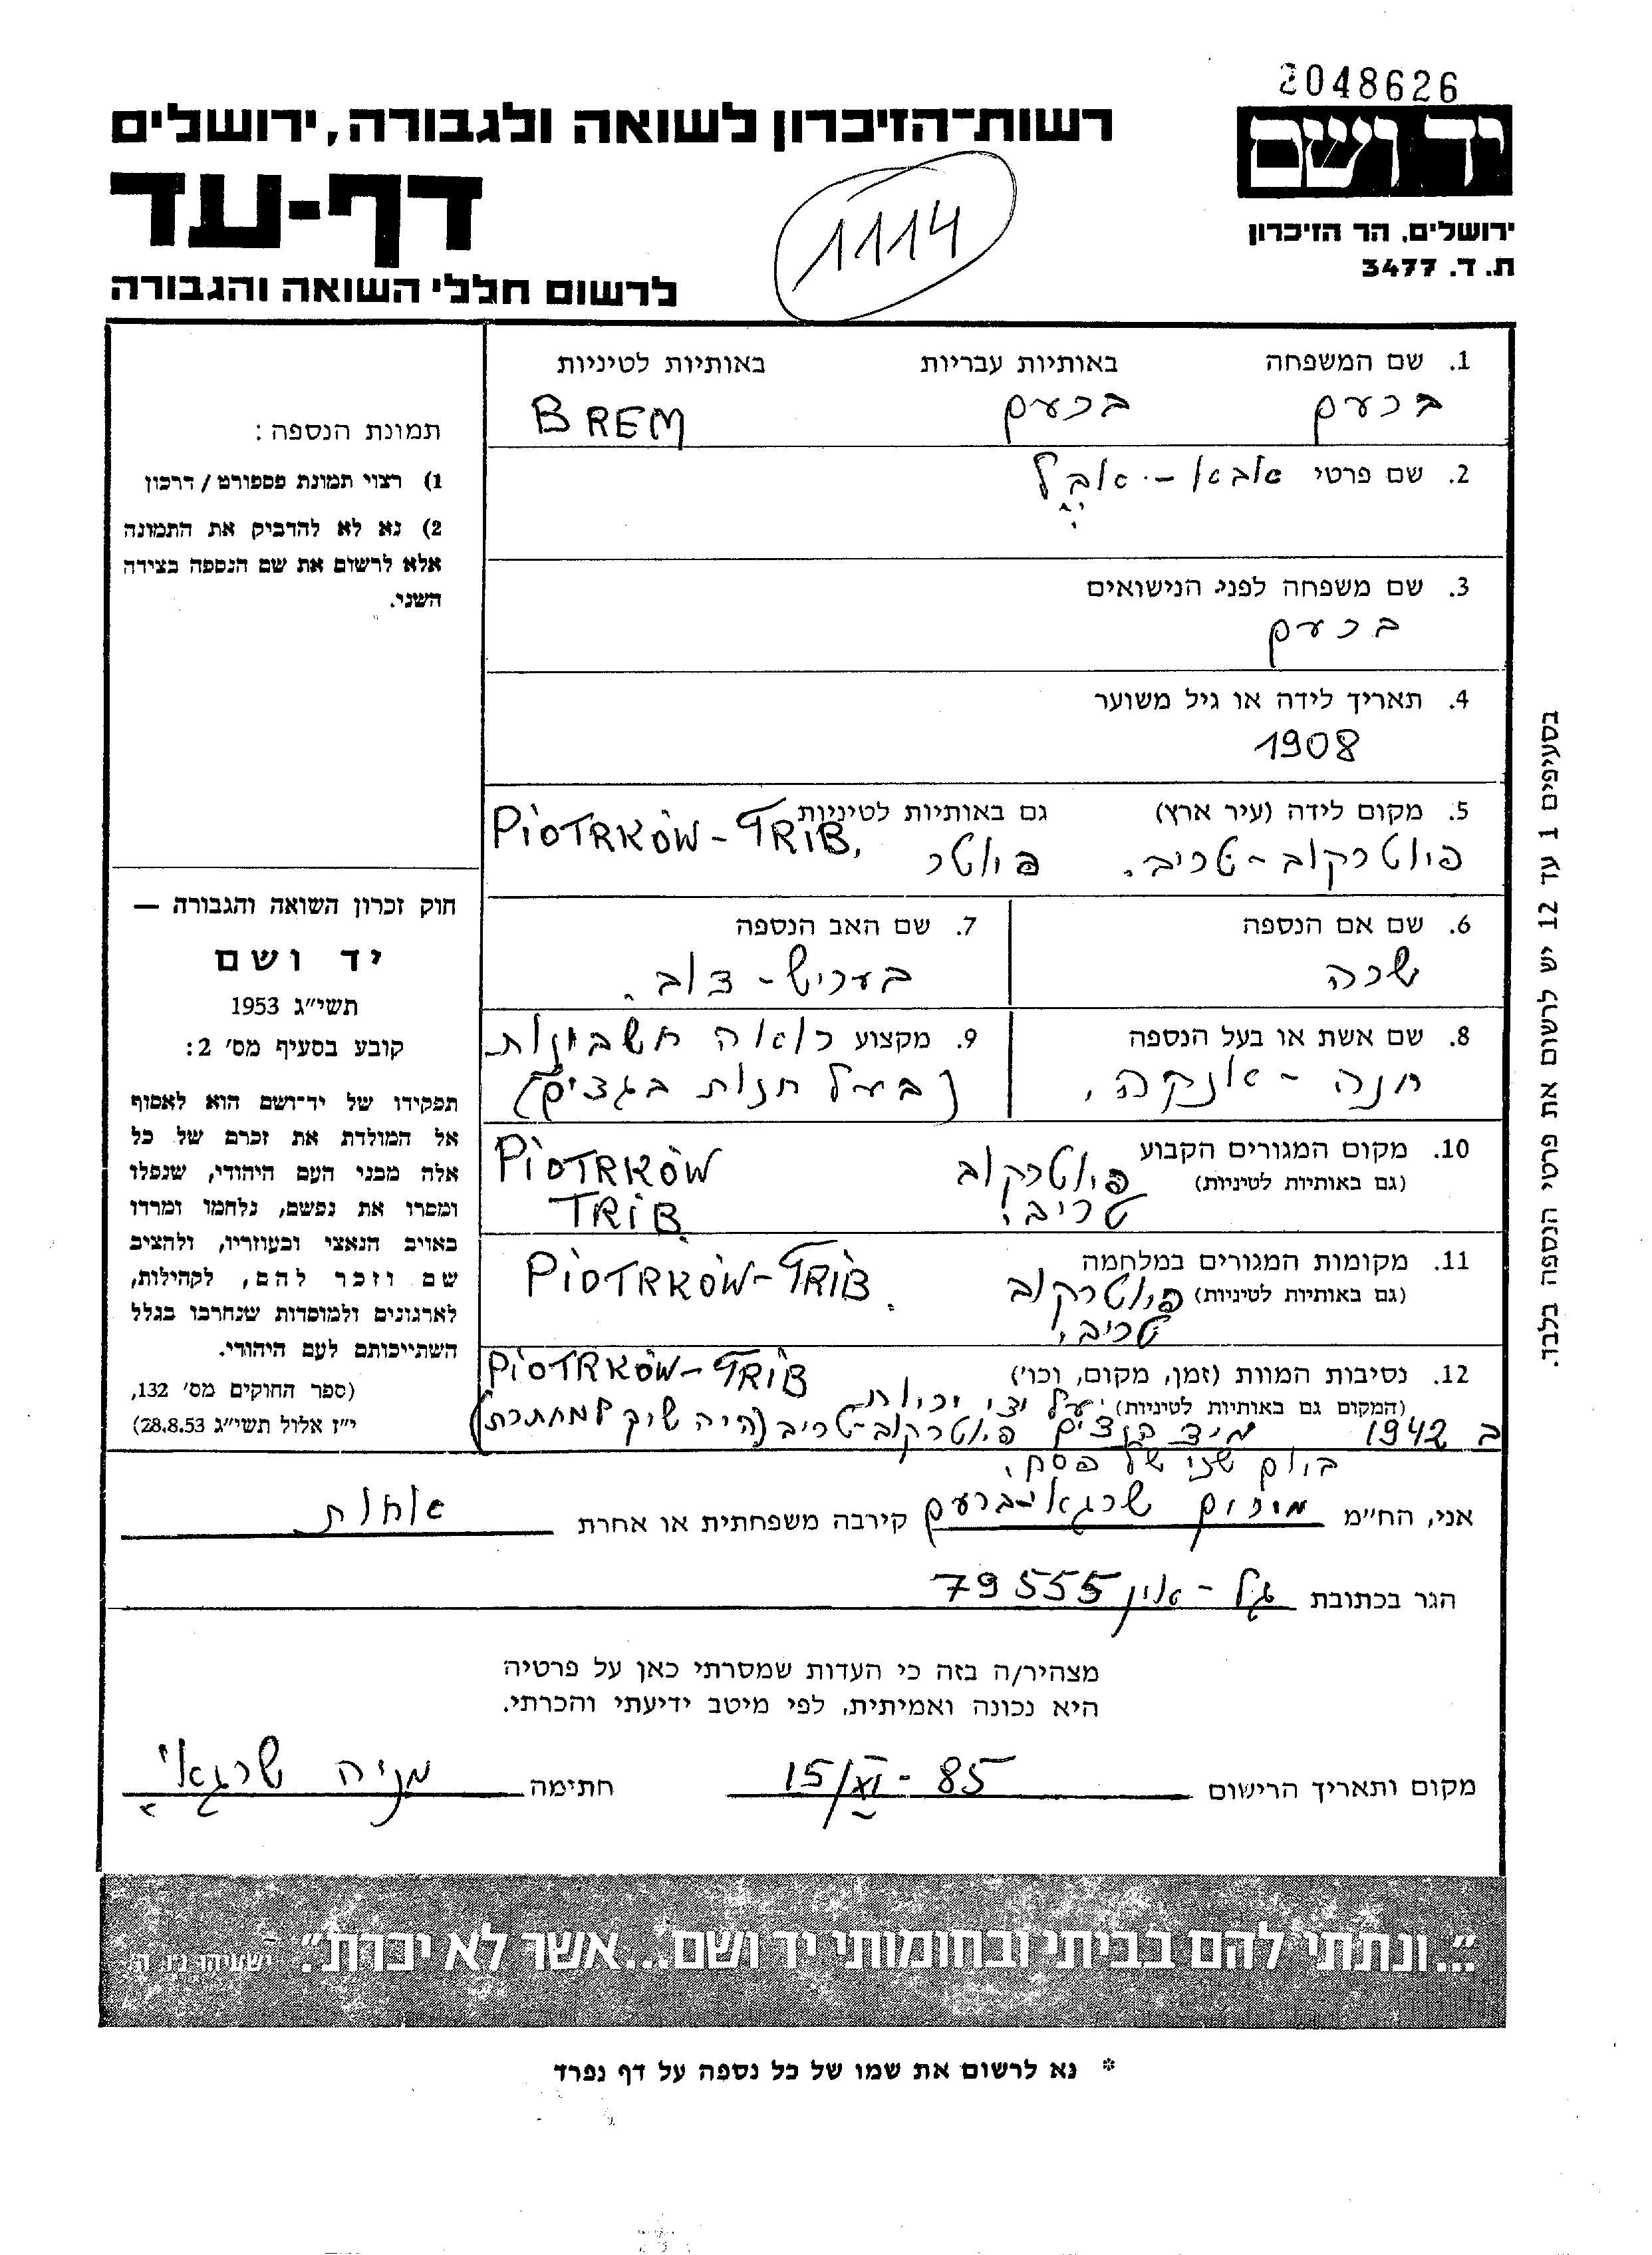 2048626
יד ושם
ירושלים. הר הזיכרון
ת. ד. 3477
רשות־הזיכרון לשואה ולגבורה, ירושלים
דף-עד
לרשום חללי השואה והגבורה
1114
1. שם המשפחה באותיות עבריות באותיות לטיניות
ברעם ברעם BREM
2. שם פרטי אבא - אבל
3. שם משפחה לפני הנישואים
ברעם
4. תאריך לידה או גיל משוער
1908
5. מקום לידה (עיר ארץ) גם באותיות לטיניות PIOTRKÓW-TRIB.
פיוטרקוב-טריב. פיוטר
6. שם אם הנספה
שרה
7. שם האב הנספה
בעריש-דוב.
8. שם אשת או בעל הנספה
חנה-אנקה.
9. מקצוע רואה חשבונות
(בעל חנות בגדים)
10. מקום המגורים הקבוע
(גם באותיות לטיניות) פיוטרקוב PIOTRKÓW
טריב. TRIB.
11. מקומות המגורים במלחמה
(גם באותיות לטיניות) פיוטרקוב PIOTRKÓW-TRIB.
טריב.
12. נסיבות המוות (זמן, מקום, וכו') PIOTRKÓW-TRIB
(המקום גם באותיות לטיניות) על ידי יריות
ב 1942 פיוטרקוב-טריב (היה שיך למחתרת)
ביום שני של פסח.
תמונת הנספה:
1) רצוי תמונת פספורט / דרכון
2) נא לא להדביק את התמונה
אלא לרשום את שם הנספה בצידה
השני.
חוק זכרון השואה והגבורה —
יד ושם
תשי״ג 1953
קובע בסעיף מס' 2:
תפקידו של יד־ושם הוא לאסוף
אל המולדת את זכרם של כל
אלה מבני העם היהודי, שנפלו
ומסרו את נפשם, נלחמו ומרדו
באויב הנאצי ובעוזריו, ולהציב
שם וזכר להם, לקהילות,
לארגונים ולמוסדות שנחרבו בגלל
השתייכותם לעם היהודי.
(ספר החוקים מס' 132,
י״ז אלול תשי״ג 28.8.53)
בסעיפים 1 עד 12 יש לרשום את פרטי הנספה בלבד.
אני, הח״מ שרגאי-ברעם קירבה משפחתית או אחרת אחות
הגר בכתובת גל-און 79555
מצהיר/ה בזה כי העדות שמסרתי כאן על פרטיה
היא נכונה ואמיתית, לפי מיטב ידיעתי והכרתי.
מקום ותאריך הרישום 15/XI-85 חתימה מניה שרגאי
”...ונתתי להם בביתי ובחומותי יד ושם...אשר לא יכרת”. ישעיהו נו, ה
* נא לרשום את שמו של כל נספה על דף נפרד